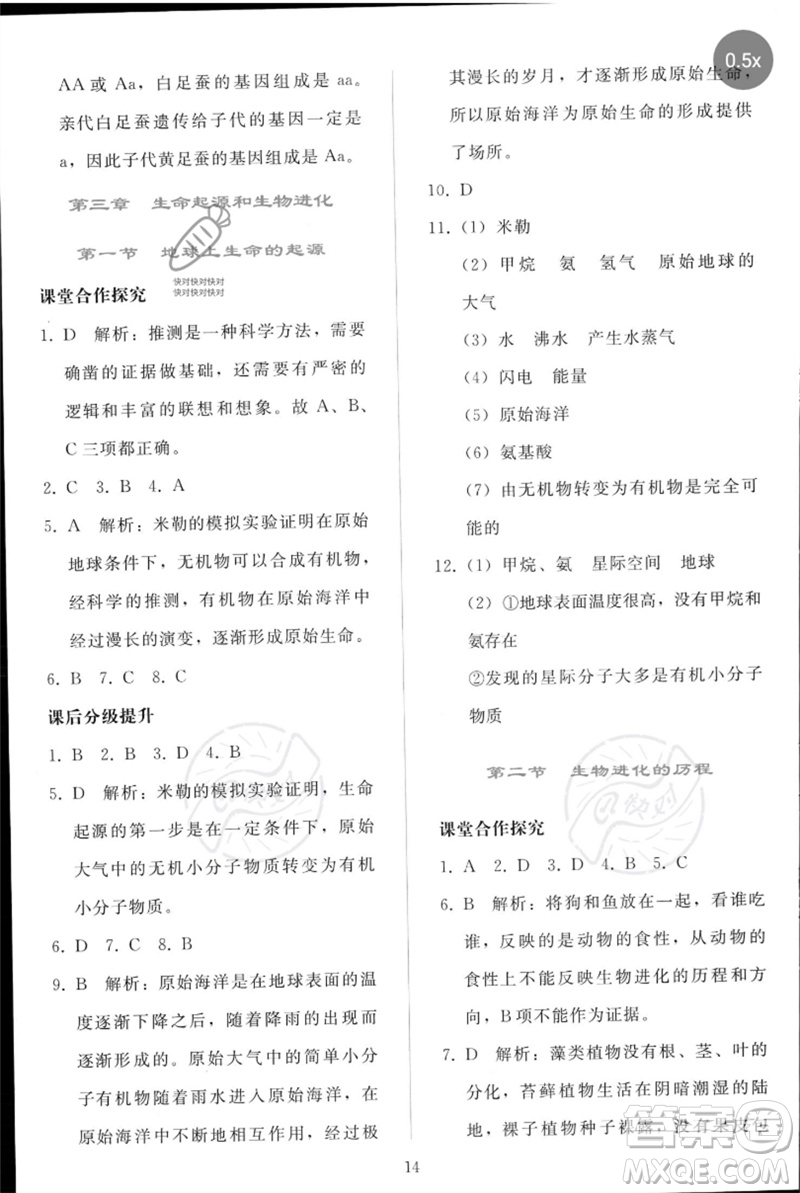 0.5x
AA或 Aa，白足蚕的基因组成是 aa。
亲代白足蚕遗传给子代的基因一定是
a，因此子代黄足蚕的基因组成是 Aa。
第三章 生命起源和生物进化
第一节 地球上生命的起源
快对快对快对
快对快对快对
课堂合作探究
1. D 解析：推测是一种科学方法，需要
确凿的证据做基础，还需要有严密的
逻辑和丰富的联想和想象。故 A、B、
C 三项都正确。
2. C 3. B 4. A
5. A 解析：米勒的模拟实验证明在原始
地球条件下，无机物可以合成有机物，
经科学的推测，有机物在原始海洋中
经过漫长的演变，逐渐形成原始生命。
6. B 7. C 8. C
课后分级提升
1. B 2. B 3. D 4. B
5. D 解析：米勒的模拟实验证明，生命
起源的第一步是在一定条件下，原始
大气中的无机小分子物质转变为有机
小分子物质。
6. D 7. C 8. B
9. B 解析：原始海洋是在地球表面的温
度逐渐下降之后，随着降雨的出现而
逐渐形成的。原始大气中的简单小分
子有机物随着雨水进入原始海洋，在
原始海洋中不断地相互作用，经过极
其漫长的岁月，才逐渐形成原始生命，
所以原始海洋为原始生命的形成提供
了场所。
10. D
11.（1）米勒
（2）甲烷 氨 氢气 原始地球的
大气
（3）水 沸水 产生水蒸气
（4）闪电 能量
（5）原始海洋
（6）氨基酸
（7）由无机物转变为有机物是完全可
能的
12.（1）甲烷、氨 星际空间 地球
（2）①地球表面温度很高，没有甲烷和
氨存在
②发现的星际分子大多是有机小分子
物质
第二节 生物进化的历程
课堂合作探究
1. A 2. D 3. D 4. B 5. C
6. B 解析：将狗和鱼放在一起，看谁吃
谁，反映的是动物的食性，从动物的
食性上不能反映生物进化的历程和方
向，B项不能作为证据。
7. D 解析：藻类植物没有根、茎、叶的
分化，苔藓植物生活在阴暗潮湿的陆
地，裸子植物种子裸露，没有果皮包
14
答案圈
MXQE.COM